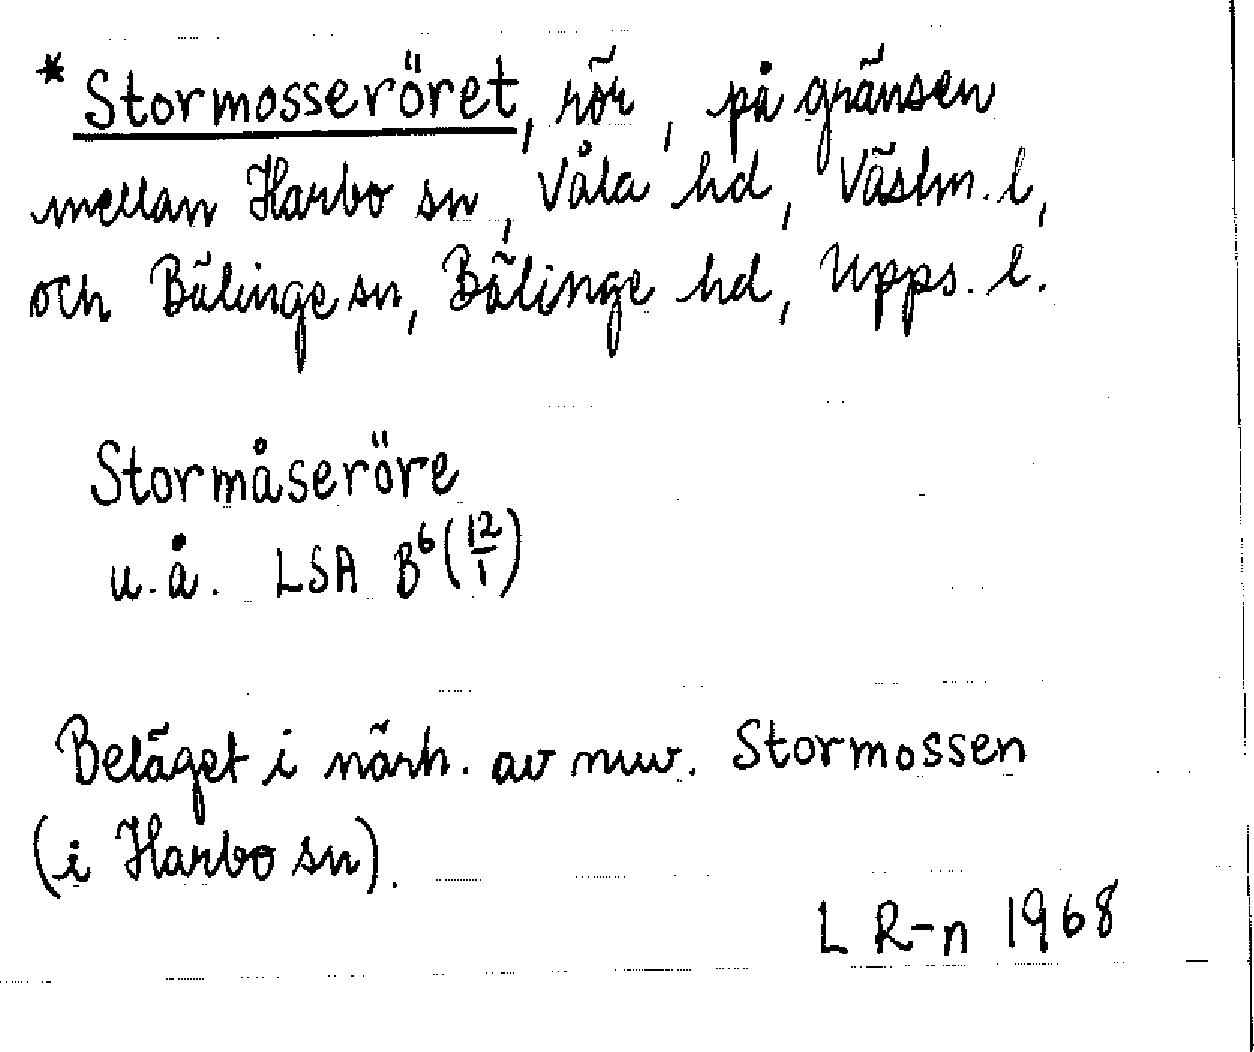 * Stormosseröret, rör, på gränsen
mellan Harbo sn, Våla hd, Västm. l,
och Bälinge sn, Bälinge hd, Upps. l.
Stormåseröre
u.å. LSA B⁶(12/1)
Beläget i närh. av nuv. Stormossen
(i Harbo sn).
L R-n 1968